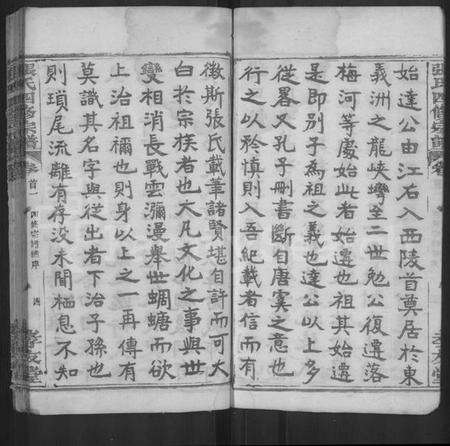 始達公由江右入西陵首奠居於東
義洲之龍峽灣至二世勉公復遷落
梅河等處始此者始遷也祖其始遷
是即別子為祖之義也達公以上多
從畧又孔子刪書斷自唐虞之意也
行之以矜慎則入吾紀載者信而有
徵斯張氏載筆諸賢堪自許而可大
白於宗族者也大凡文化之事與世
變相消長戰雲瀰漫舉世蜩螗而欲
上治祖禰也則身以上之一再傳有
莫識其名字與從出者下治子孫也
則瑣尾流離有存沒未聞栖息不知
張氏四修宗譜
卷首一
孝友堂